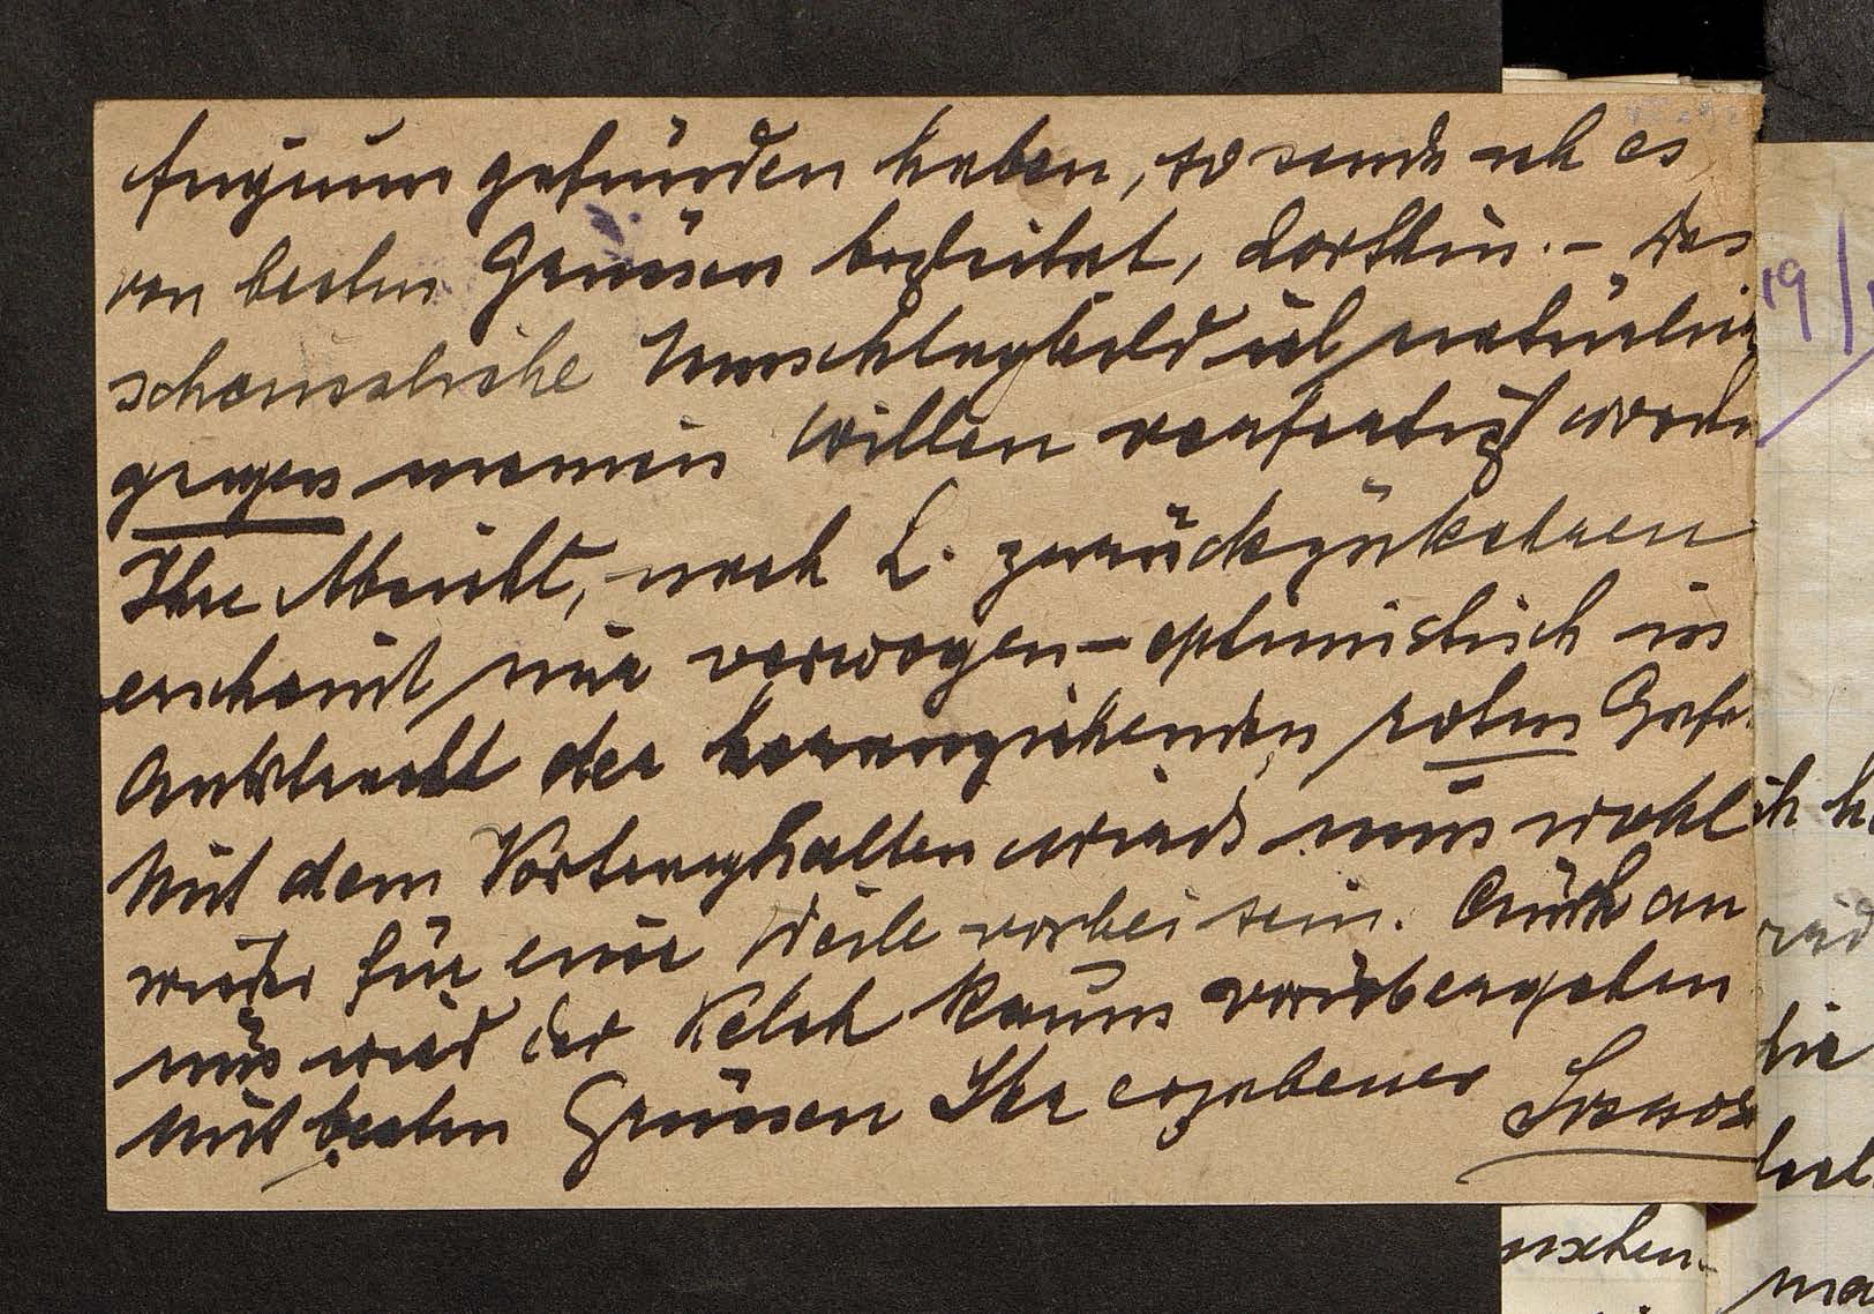 fugium gefunden haben, so sende ich es
von besten Grüssen begleitet, dorthin. – Das
scheussliche Umschlagbild ist natürlich
gegen meinen Willen verfertigt worden
Ihre Absicht, nach L. zurückzukehren
erscheint mir verwegen-optimistisch in
Anbetracht der heranziehenden roten Gefa
Mit dem Vortraghalten wirds nun wohl
wieder für eine Weile vorbei sein. Auch an
uns wird der Kelch kaum vorübergehen
Mit besten Grüssen Ihr ergebener
19/
ih
die
nschen.